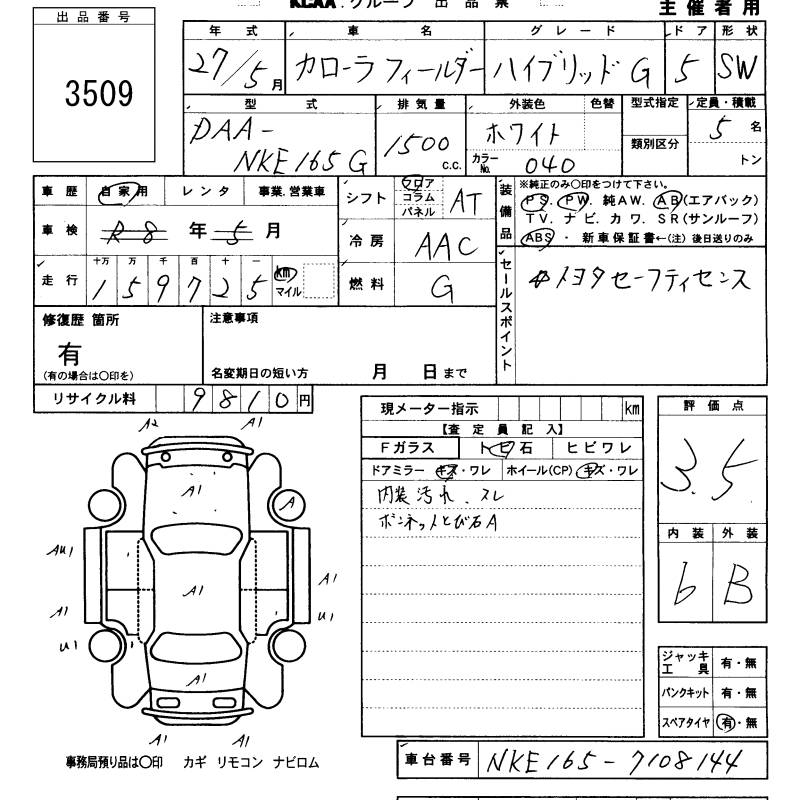 KCAA.グループ 出品票
主催者用
出品番号
3509
年式 車名 グレード ドア 形状
27/5月 カローラフィールダー ハイブリッド G 5 SW
型式 排気量 外装色 色替 型式指定 定員・積載
DAA-NKE165G 1500 c.c. ホワイト 類別区分 5名
カラーNo. 040 トン
車歴 自家用 レンタ 事業.営業車
車検 R8年5月
走行 十万 万 千 百 十 一
159725 km マイル
シフト フロア コラム パネル AT
冷房 AAC
燃料 G
装備品 ※純正のみ○印をつけて下さい。
PS. PW. 純AW. AB(エアバック)
TV. ナビ. カワ. SR(サンルーフ)
ABS ・ 新車保証書←(注)後日送りのみ
セールスポイント
トヨタセーフティセンス
修復歴 箇所
有
(有の場合は○印を)
注意事項
名変期日の短い方 月 日まで
リサイクル料 9810円
現メーター指示 km
【査定員記入】
Fガラス トビ石 ヒビワレ
ドアミラー キズ・ワレ ホイール(CP) キズ・ワレ
内装汚れ、スレ
ボンネットとび石A
評価点
3.5
内装 外装
6 B
A2 A1
A1
A
AU1
A1
A1
A1
U1
U1
A1
A1 A1
ジャッキ工具 有・無
パンクキット 有・無
スペアタイヤ 有・無
事務局預り品は○印 カギ リモコン ナビロム
車台番号 NKE165-7108144